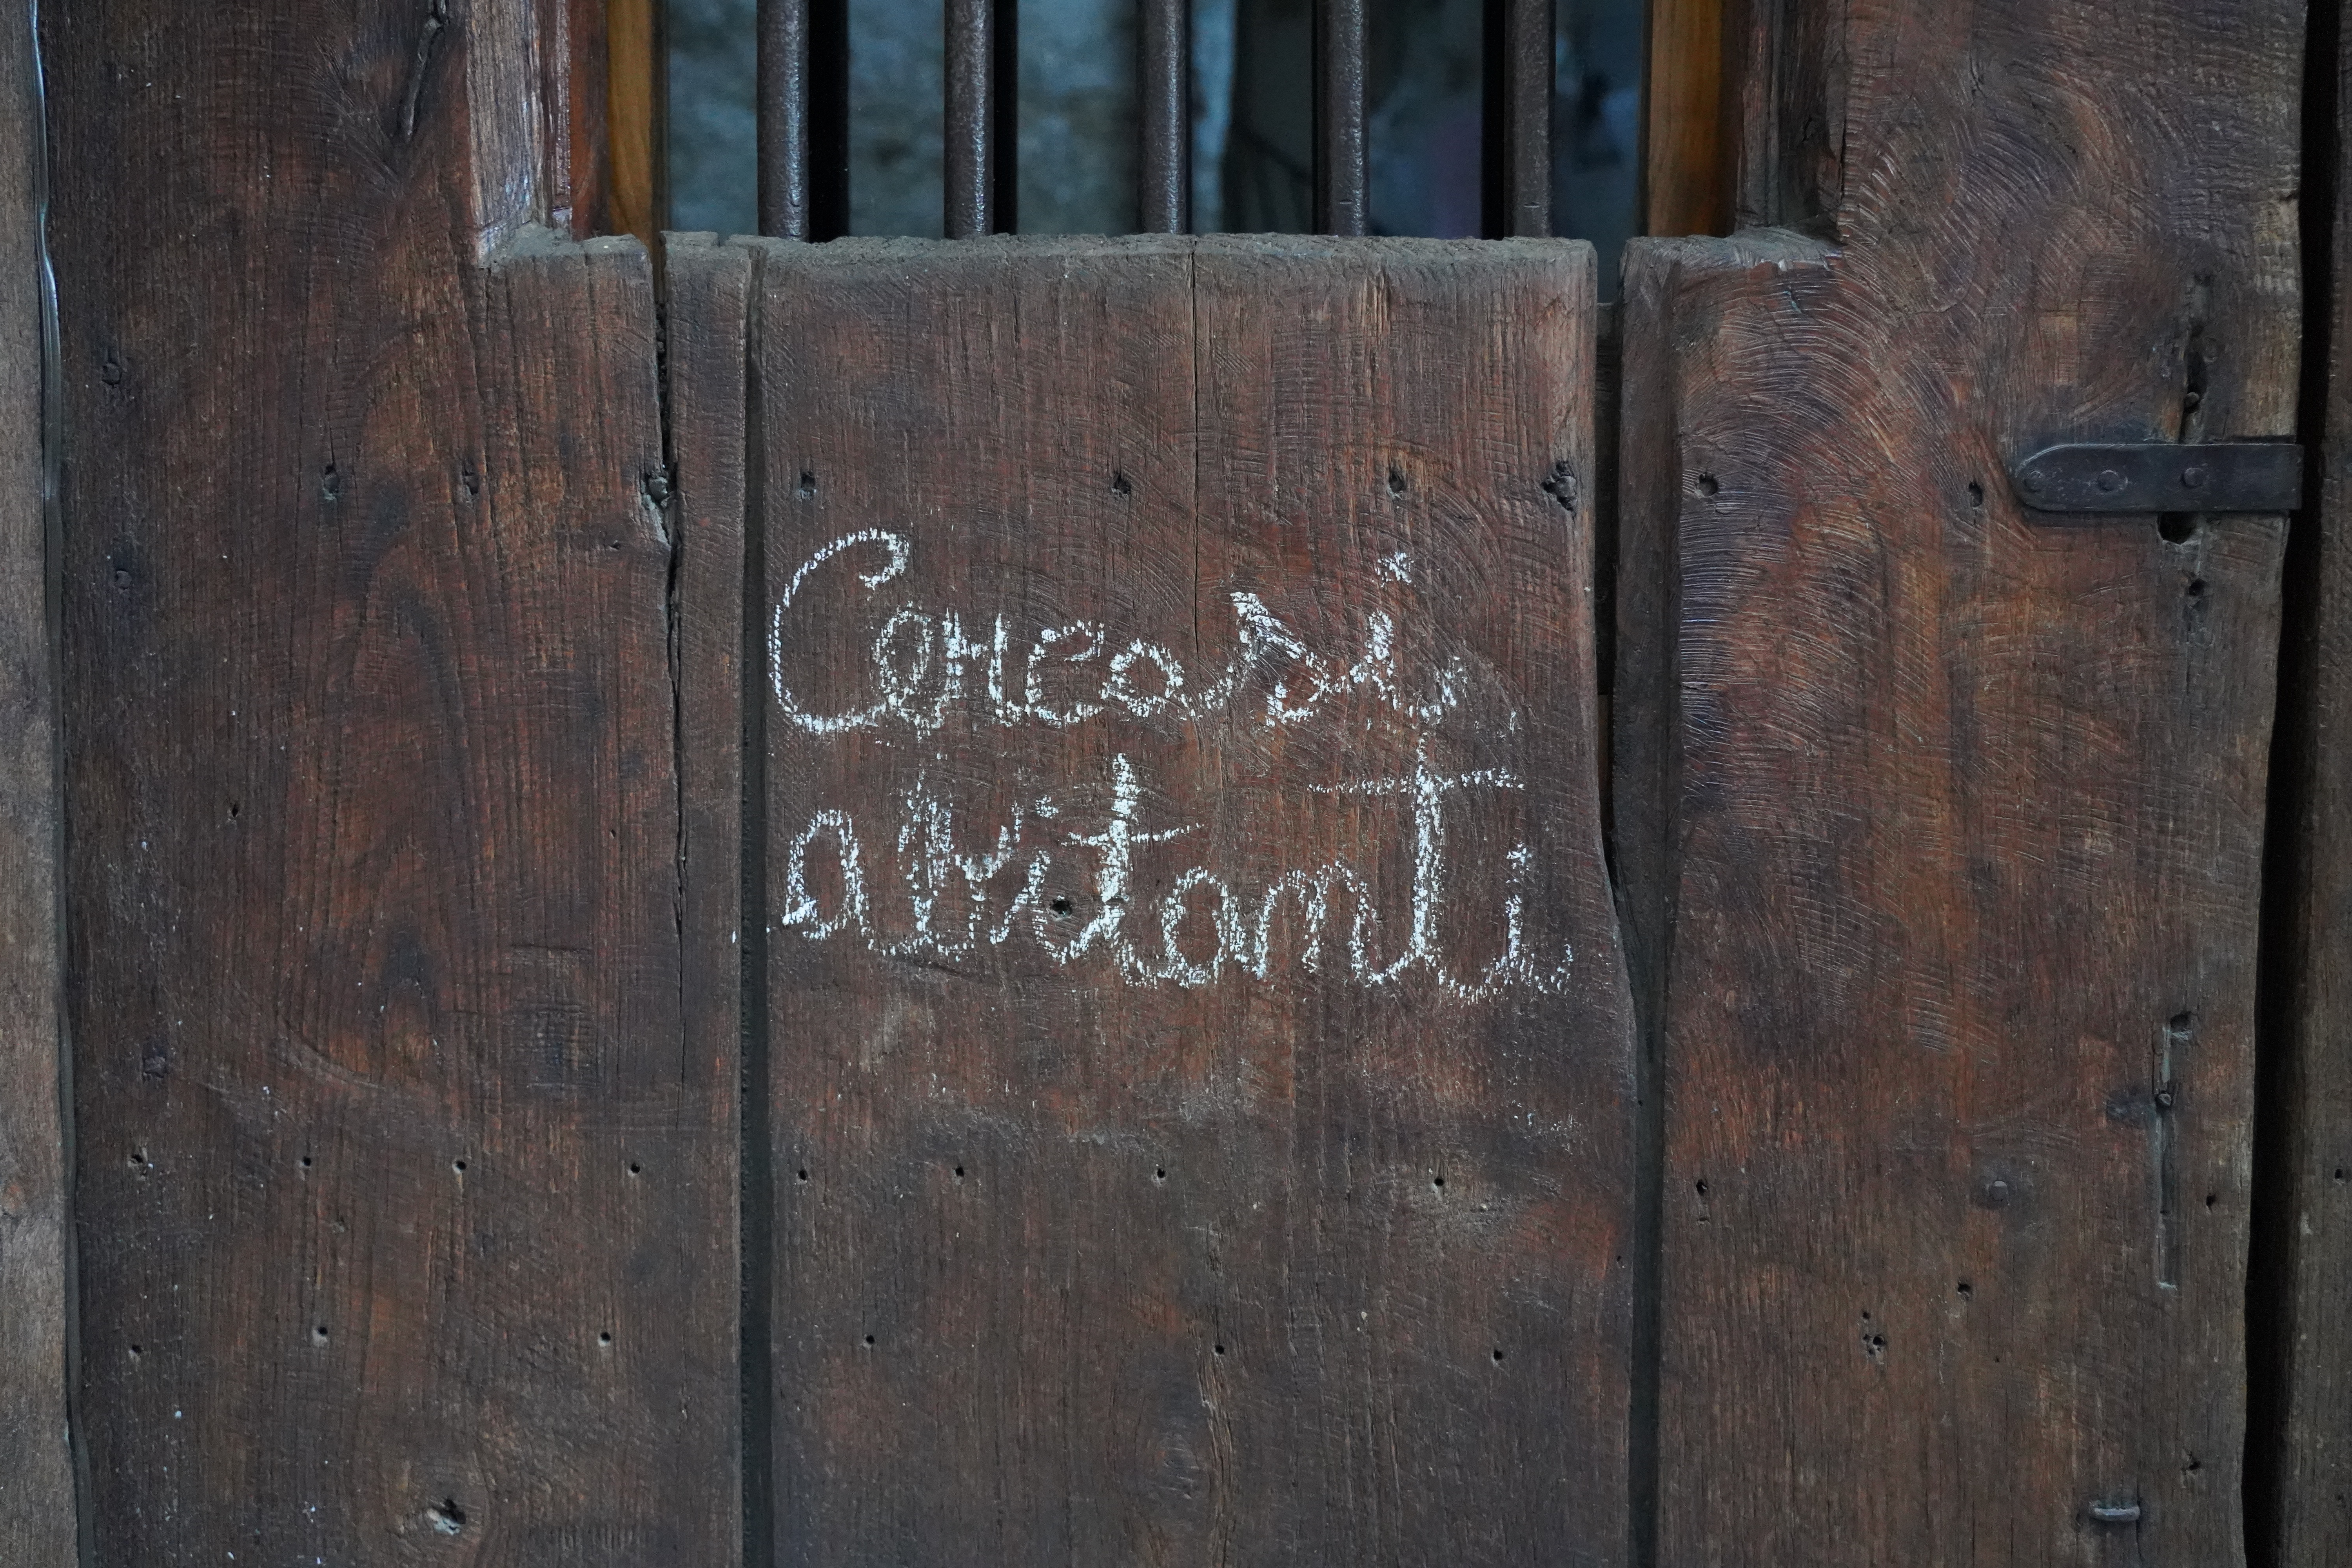 Cercasi
abitanti